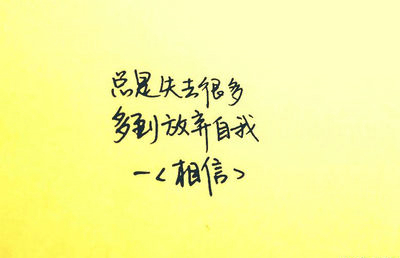 总是失去很多
多到放弃自我
一<相信>